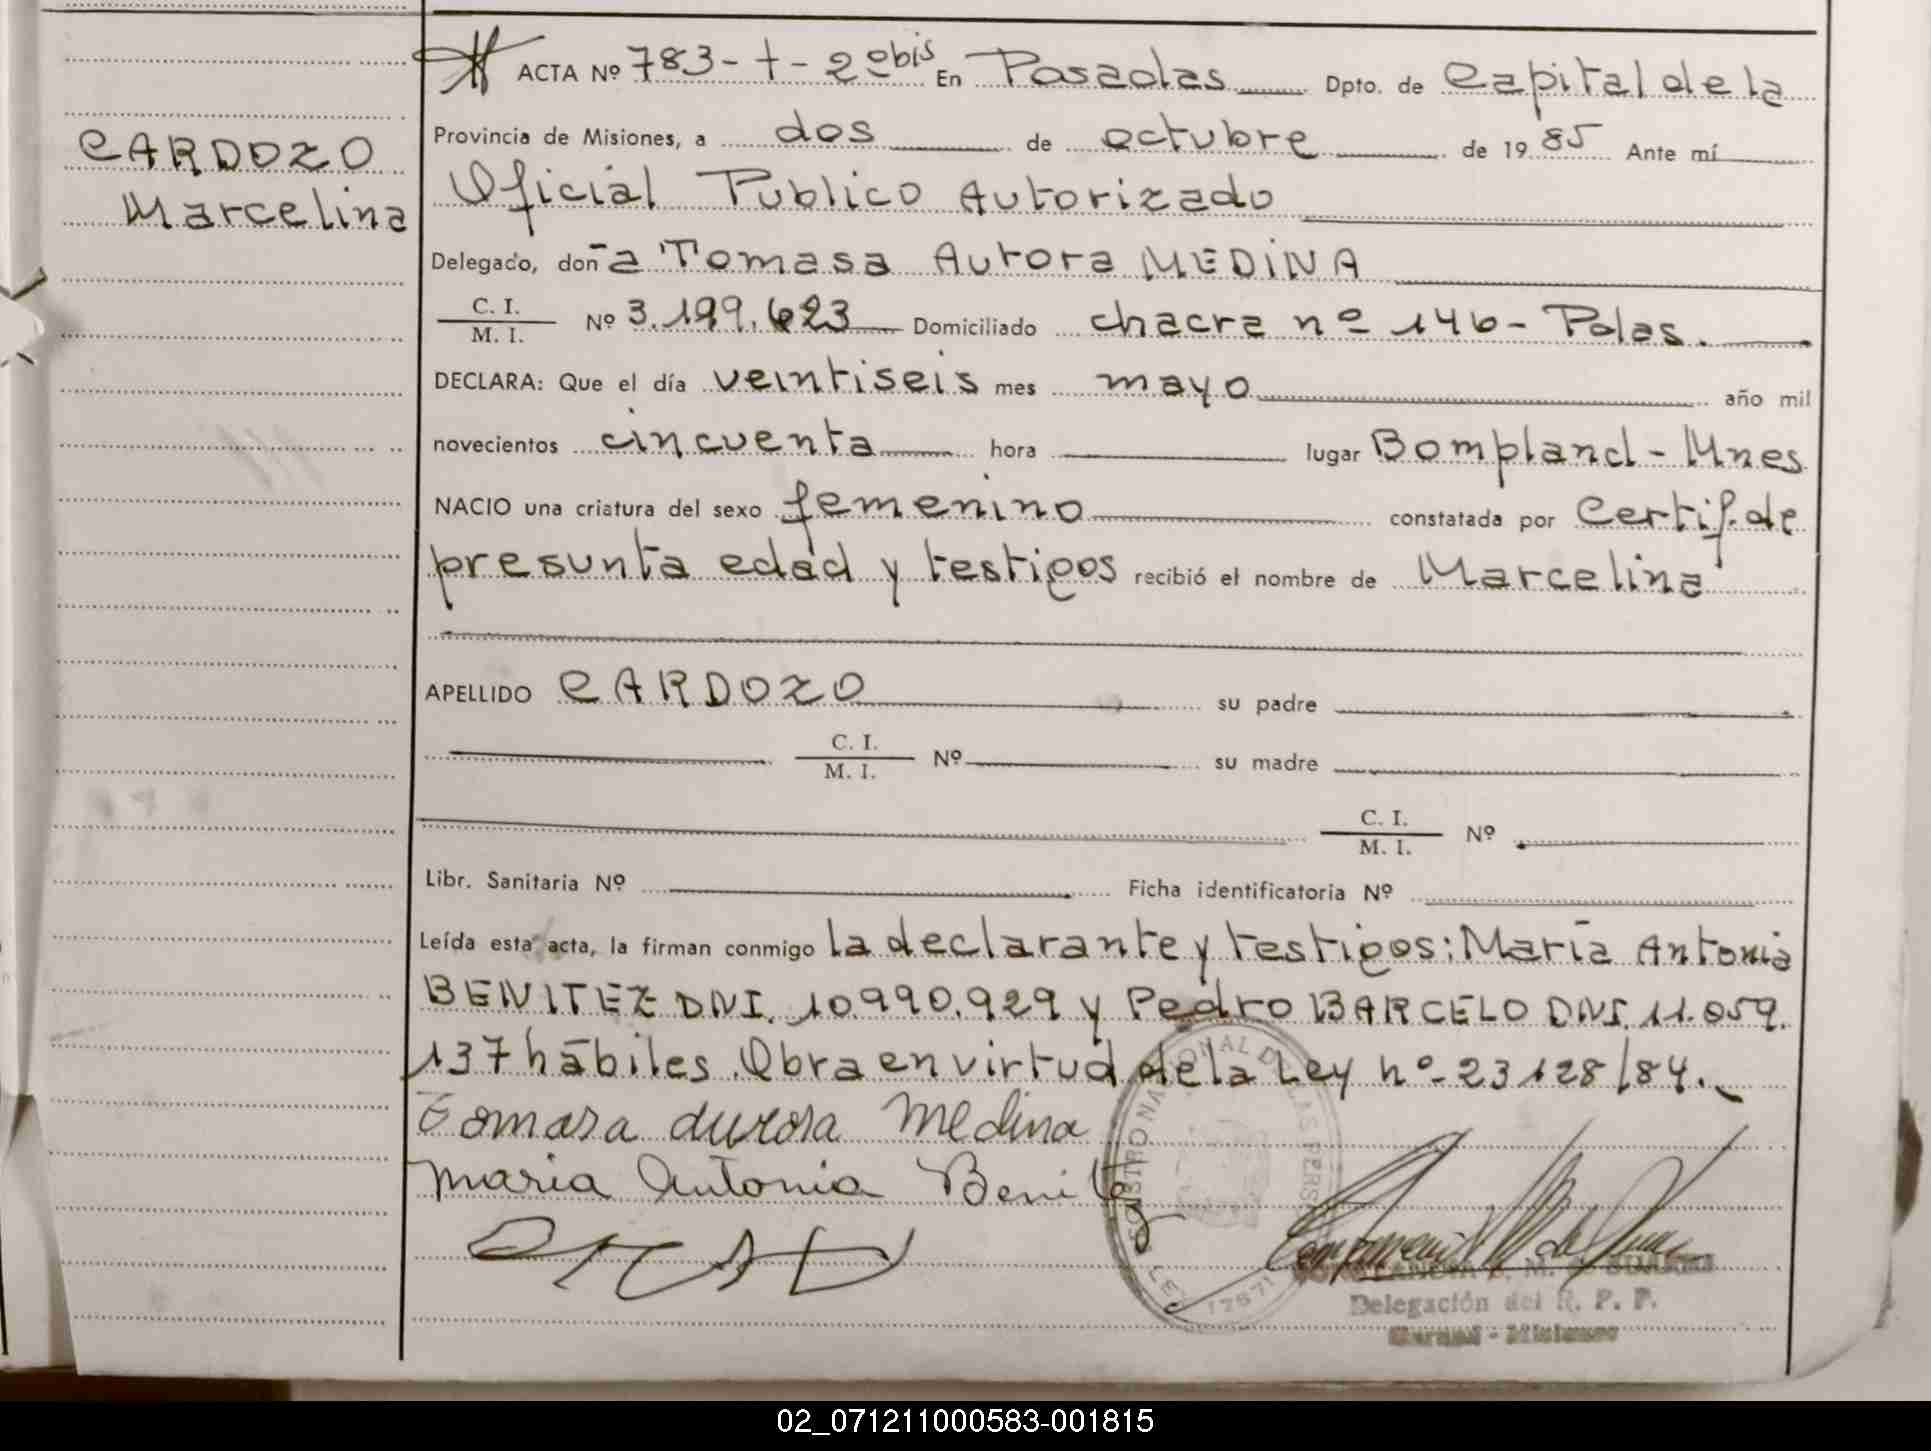 CARDOZO
Marcelina
ACTA Nº 783-t-2ºbis En Posadas Dpto. de Capital de la
Provincia de Misiones, a dos de octubre de 1985 Ante mí
Oficial Publico Autorizado
Delegado, doña Tomasa Aurora MEDINA
C. I.
M. I.
Nº 3.199.623 Domiciliado chacra nº 146- Pdas.
DECLARA: Que el día veintiseis mes mayo año mil
novecientos cincuenta hora lugar Bompland-Mnes
NACIO una criatura del sexo femenino constatada por Certif. de
presunta edad y testigos recibió el nombre de Marcelina
APELLIDO CARDOZO su padre
C. I.
M. I.
Nº su madre
C. I.
M. I.
Nº
Libr. Sanitaria Nº Ficha identificatoria Nº
Leída esta acta, la firman conmigo la declarante y testigos: María Antonia
BENITEZ DNI. 10.990.929 y Pedro BARCELO DNI. 11.059.
137 hábiles. Obra en virtud de la Ley nº 23128/84.
Tomasa Aurora Medina
Maria Antonia Benitez
REGISTRO NACIONAL DE LAS PERS
LEY 17671
Delegación del R. P. P.
Misiones
02_071211000583-001815